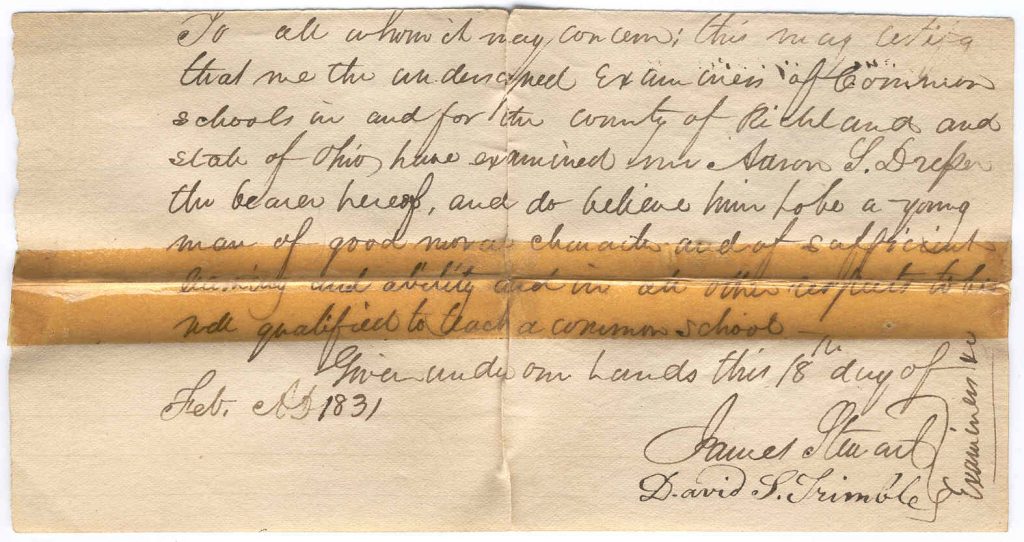 To all whom it may concern; this may certify
that we the undersigned Examiners of Common
schools in and for the county of Richland and
state of Ohio, have examined mr Aaron S. Dresser
the bearer hereof, and do believe him to be a young
man of good moral character and of sufficient
learning and ability and in all other respects to be
well qualified to teach a common school —
Given under our hands this 18th day of
Feb. AD 1831
James Stewart
David S. Trimble
Examiners &c